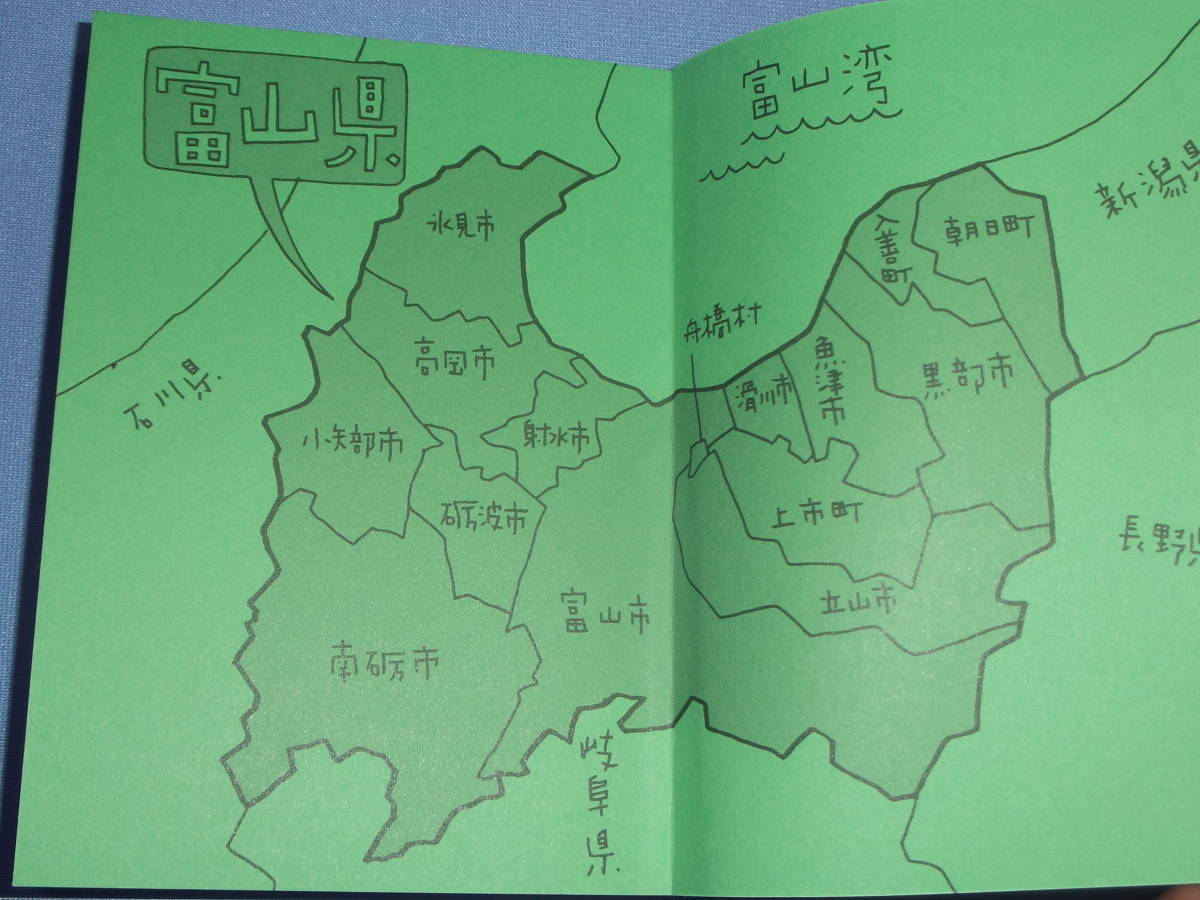 富山県
富山湾
新潟県
氷見市
入善町
朝日町
舟橋村
高岡市
魚津市
滑川市
黒部市
石川県
小矢部市
射水市
砺波市
上市町
長野県
立山市
富山市
南砺市
岐阜県